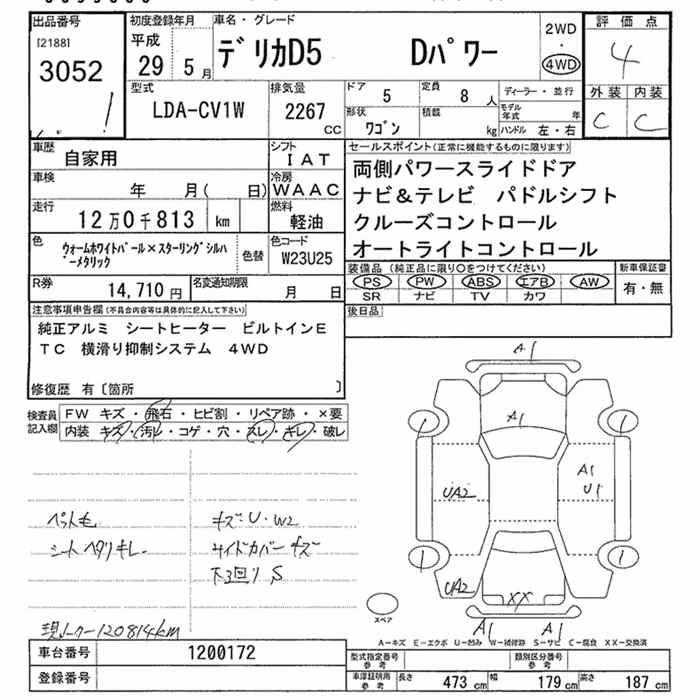 出品番号
[2188]
3052
初度登録年月
平成
29 5月
車名・グレード
デリカD5 Dパワー
2WD
・
4WD
評価点
4
外装 内装
C C
型式
LDA-CV1W
排気量
2267
CC
ドア
5
定員
8人
形状
ワゴン
積載
kg
ディーラー・並行
モデル
年式 年
ハンドル 左・右
車歴
自家用
シフト
IAT
車検
年 月( 日)
冷房
WAAC
走行
12万0千813 km
燃料
軽油
色
ウォームホワイトパール×スターリングシルバ
ーメタリック
色替
色コード
W23U25
R券
14,710円
名変通知期限
月 日
セールスポイント(正常に機能するものに限ります)
両側パワースライドドア
ナビ&テレビ パドルシフト
クルーズコントロール
オートライトコントロール
装備品(純正品に限り○をつけてください)
PS PW ABS エアB AW
SR ナビ TV カワ
新車保証書
有・無
後日品
注意事項申告欄(不具合内容等は具体的に記入して下さい)
純正アルミ シートヒーター ビルトインE
TC 横滑り抑制システム 4WD
修復歴 有〔箇所 〕
検査員
記入欄
FW キズ・飛石・ヒビ割・リペア跡・×要
内装 キズ・汚レ・コゲ・穴・スレ・キレ・破レ
ペット毛
シートヘタリキレ
キズ・U・W2
サイドカバーキズ
下廻り S
現メーター120814km
A1
A1
A1
U1
UA2
UA2
XX
A1
A1
スペア
A－キズ E－エクボ U－凹み W－補修跡 S－サビ C－腐食 XX－交換済
車台番号
1200172
登録番号
型式指定番号
参考
類別区分番号
参考
車庫証明用
参考
長さ 473 cm 幅 179 cm 高さ 187 cm